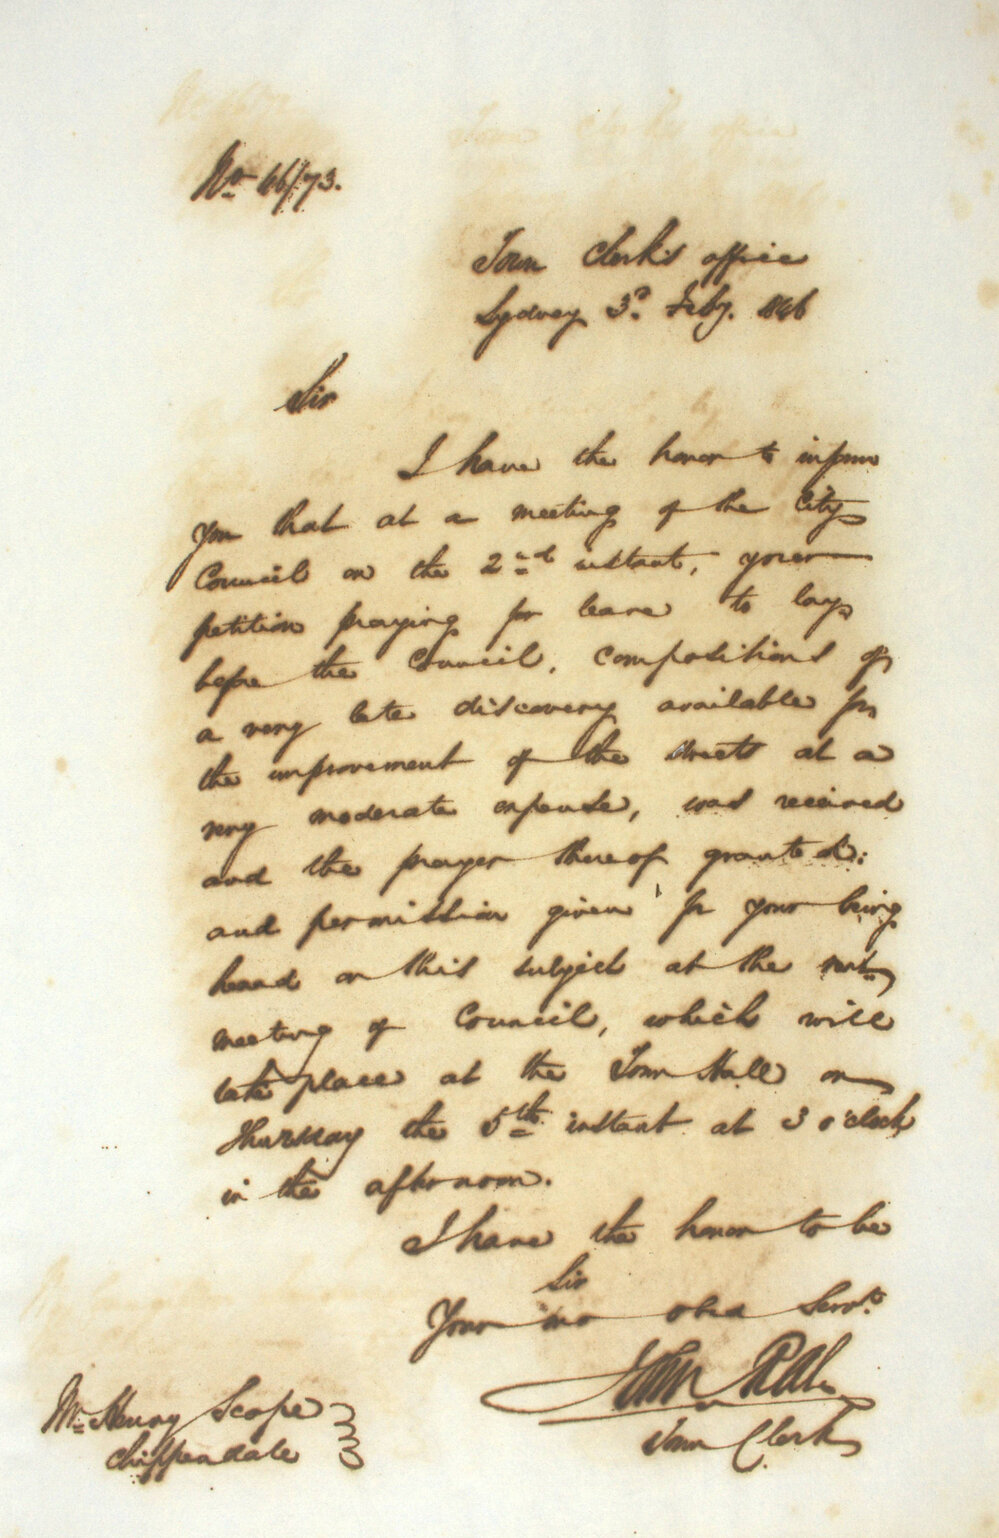 No 46/73.
Town Clerk's office
Sydney 3d. Feby. 1846
Sir
I have the honor to inform
you that at a meeting of the City
Council on the 2nd instant, your
petition praying for leave to lay
before the Council, compositions of
a very late discovery available for
the improvement of the streets at a
very moderate expense, was received
and the prayer thereof granted:
and permission given for your being
heard on this subject at the next
meeting of Council, which will
take place at the Town Hall on
Thursday the 5th instant at 3 o'clock
in the afternoon.
I have the honor to be
Sir
Your mo obed Servt.
John
Town Clerk
Mr. Henry Scope
Chippendale